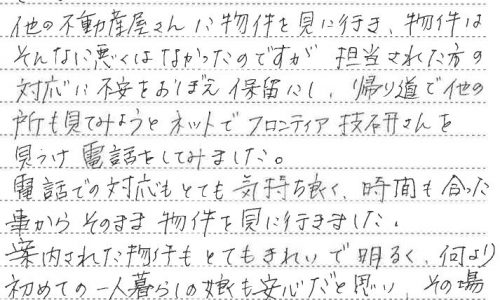 他の不動産屋さんに物件を見に行き、物件は
そんなに悪くはなかったのですが 担当された方の
対応に不安をおぼえ保留にし、帰り道で他の
所も見てみようとネットでフロンティア技研さんを
見つけ電話をしてみました。
電話での対応もとても気持ち良く、時間も合った
事からそのまま物件を見に行きました。
案内された物件もとてもきれいで明るく、何より
初めての一人暮らしの娘も安心だと思い、その場